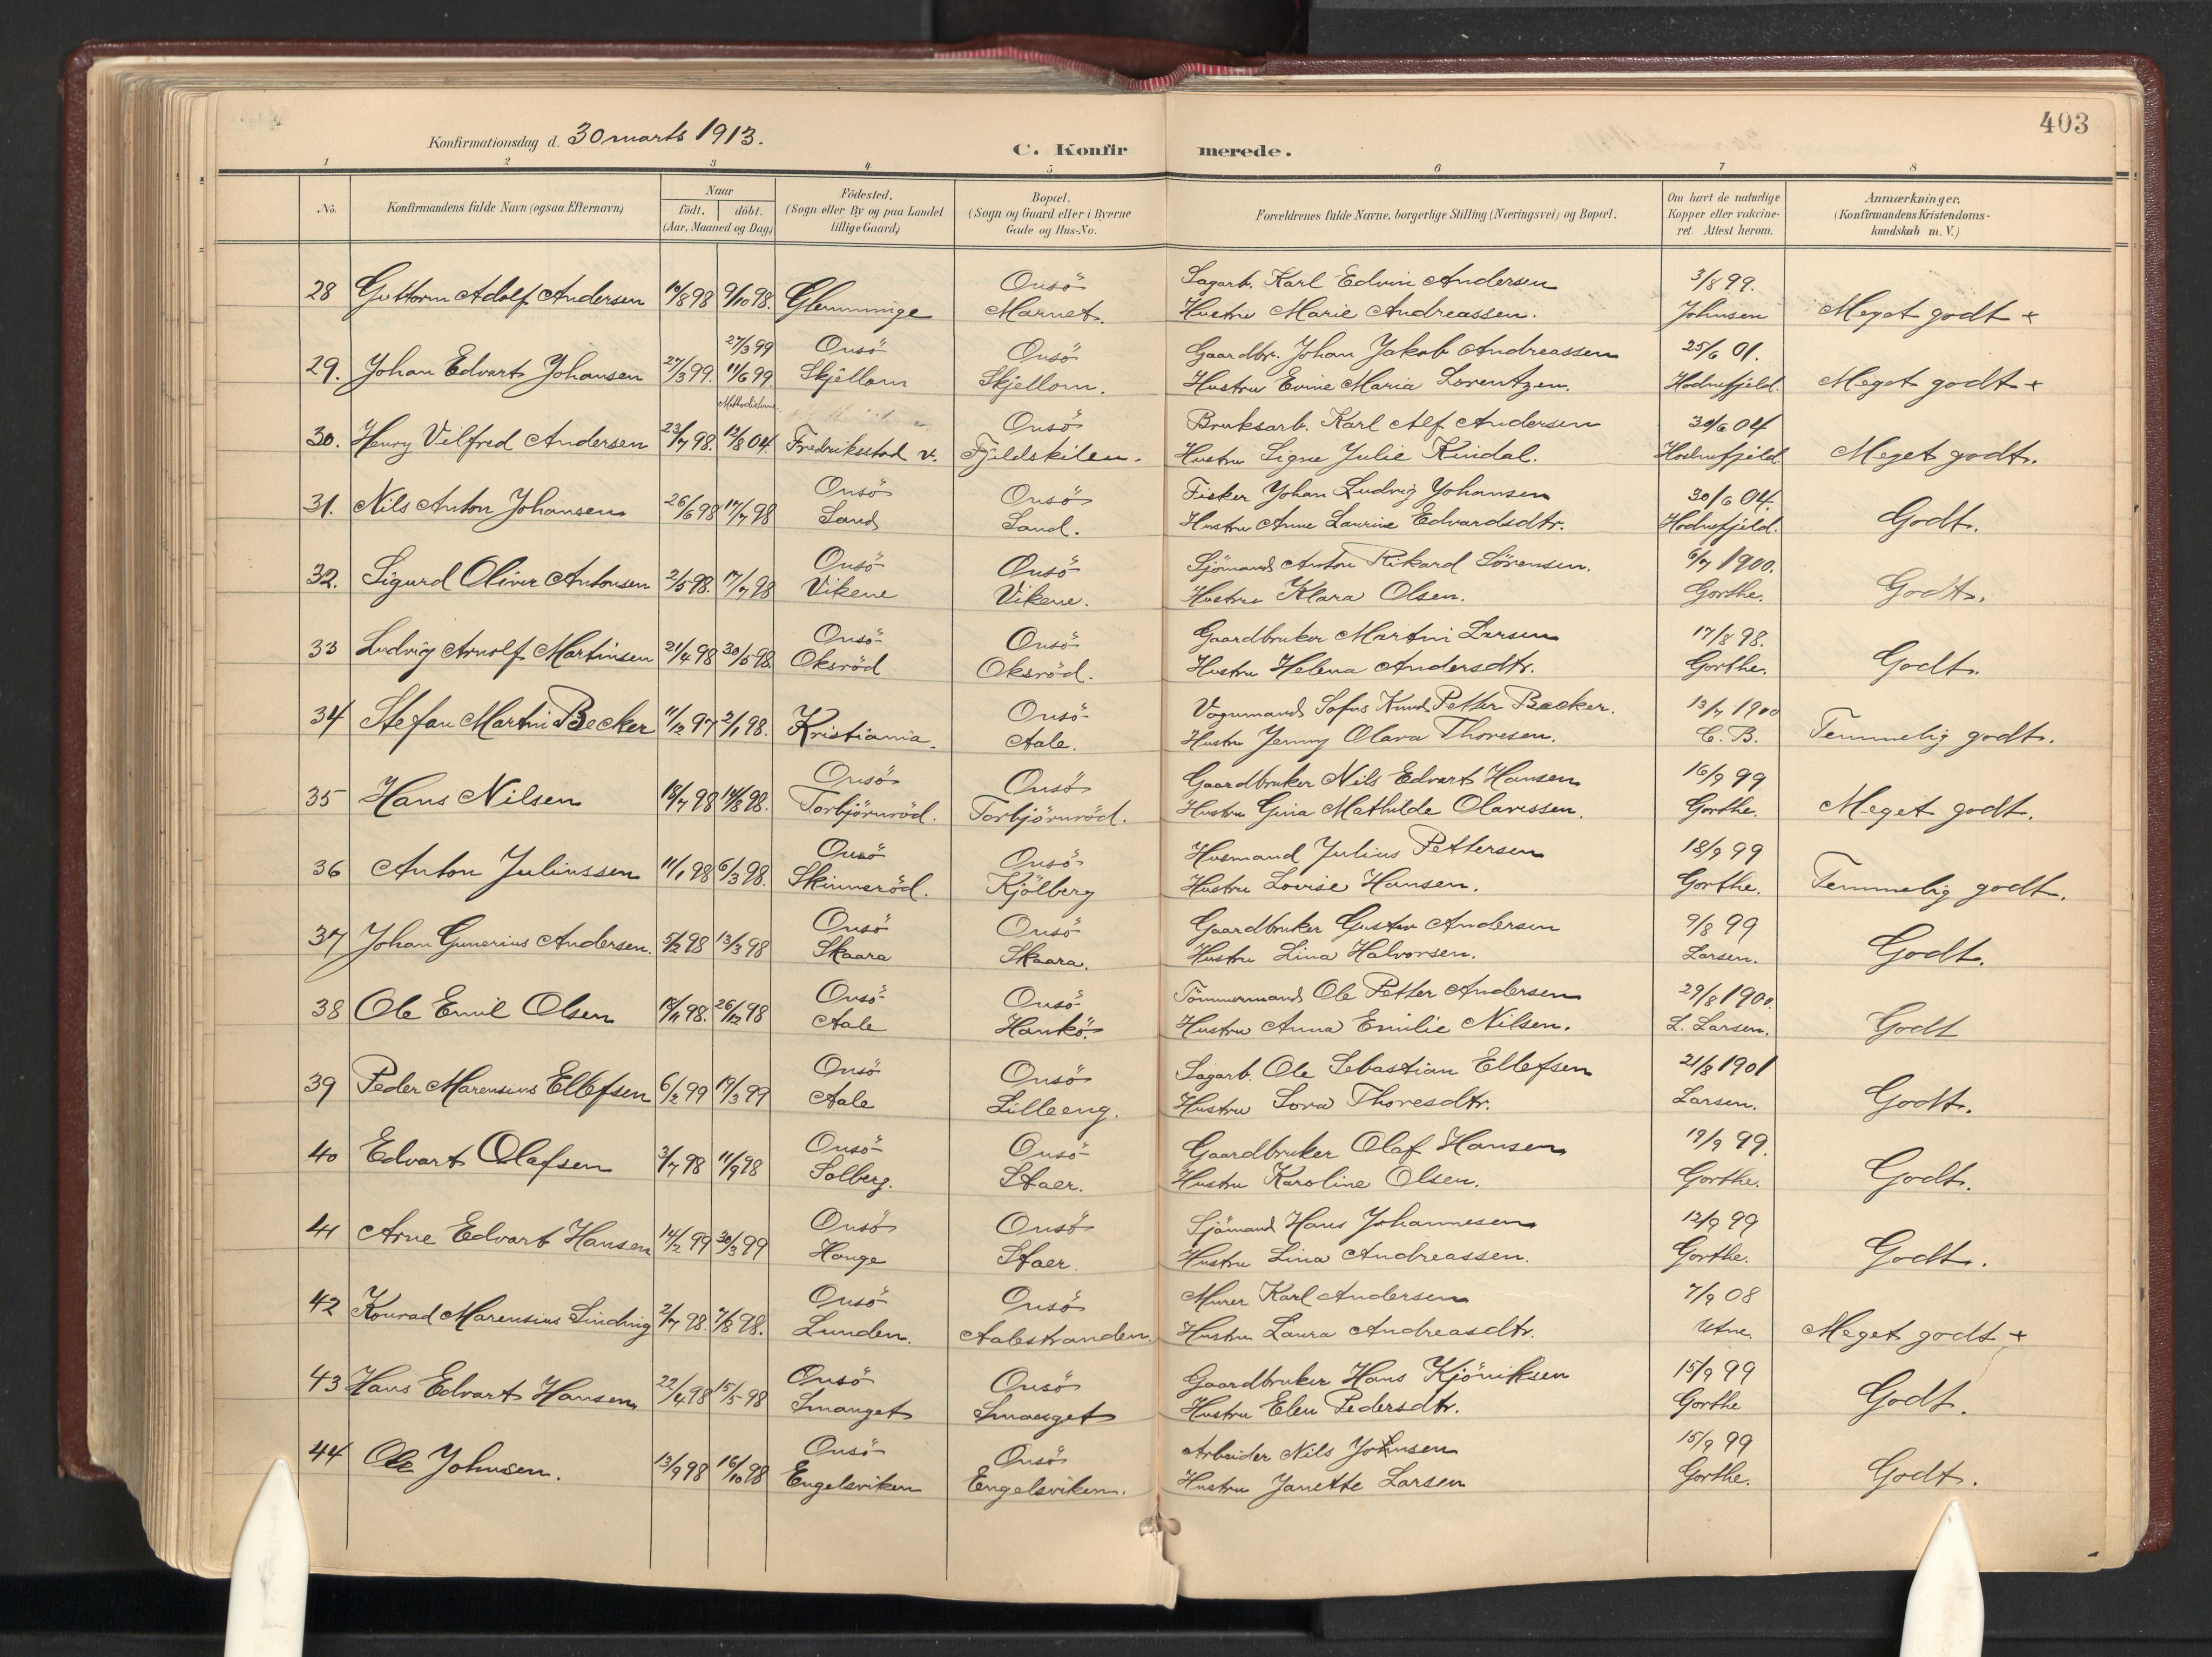 403
Konfirmationsdag d. 30 marts 1913.
C. Konfirmerede.
1 2 3 4 5 6 7 8
No.
Konfirmandens fulde Navn (ogsaa Efternavn)
Naar
födt. döbt.
(Aar, Maaned og Dag)
Födested.
(Sogn eller By og paa Landet
tillige Gaard)
Bopæl.
(Sogn og Gaard eller i Byerne
Gade og Hus-No.
Forældrenes fulde Navne, borgerlige Stilling (Næringsvei) og Bopæl.
Om havt de naturlige
Kopper eller vakcine-
ret. Attest herom.
Anmærkninger.
(Konfirmandens Kristendoms-
kundskab m. V.)
Onsö Sagarb. Karl Edvin Andersen 3/8 99.
28 Guttorm Adolf Andersen 10/8 98 9/10 98. Glemminge Marnet. Hustru Marie Andreassen. Johnsen Meget godt +
27/3 99 Onsö Onsö Gaardbr. Johan Jakob Andreassen 25/6 01.
29. Johan Edvart Johansen 27/3 99. 11/6 99. Skjellom Skjellom. Hustru Evine Maria Lorentzen. Hodnefjeld. Meget godt +
Onsö Bruksarb. Karl Alf Andersen 30/6 04
30. Henry Vilfred Andersen 23/7 98. 12/8 04. Fredriksstad v. Fjeldskilen. Hustru Signe Julie Kindal. Hodnefjeld. Meget godt.
Onsö Onsö Fisker Johan Ludvig Johansen 30/6 04.
31. Nils Anton Johansen 26/6 98 17/7 98 Sand Sand. Hustru Anne Laurine Edvardsdtr. Hodnefjeld. Godt.
Onsö Onsö Sjömand Anton Rikard Sörensen. 6/7 1900.
32. Sigurd Oliver Antonsen 2/5 98. 17/7 98 Vikene Vikene. Hustru Klara Olsen. Gorthe. Godt.
Onsö Onsö Gaardbruker Martin Larsen 17/8 98.
33 Ludvig Arnolf Martinsen 21/4 98 30/5 98 Oksröd Oksröd. Hustru Helena Andersdtr. Gorthe. Godt.
Onsö Vognmand Sofus Knud Petter Becker. 13/7 1900
34 Stefan Martin Becker 11/12 97 2/1 98. Kristiania. Aale. Hustru Jenny Olava Thoresen. C. B. Temmelig godt.
Onsö Onsö Gaardbruker Nils Edvart Hansen 16/9 99
35 Hans Nilsen 18/7 98 14/8 98. Torbjörnröd. Torbjörnröd. Hustru Gina Mathilde Olavessen. Gorthe. Meget godt.
Onsö Onsö Husmand Julius Pettersen 18/9 99
36 Anton Juliussen 11/1 98 6/3 98. Skinneröd. Kjölberg Hustru Lovise Hansen. Gorthe. Temmelig godt.
Onsö Onsö Gaardbruker Gustav Andersen 9/8 99
37 Johan Gunerius Andersen. 5/2 98 13/3 98 Skaara Skaara. Hustru Lina Halvorsen. Larsen. Godt.
Onsö Onsö Tömmermand Ole Petter Andersen 29/8 1900.
38 Ole Emil Olsen 18/11 98. 26/12 98 Aale Hankö. Hustru Anna Emilie Nilsen. L. Larsen. Godt
Onsö Onsö Sagarb. Ole Sebastian Ellefsen 21/8 1901
39 Peder Marensius Ellefsen 6/2 99 19/3 99 Aale Lilleeng. Hustru Lova Thoresdtr. Larsen. Godt.
Onsö Onsö Gaardbruker Olaf Hansen 19/9 99.
40 Edvart Olafsen 3/7 98 11/9 98 Solberg. Staer. Hustru Karoline Olsen. Gorthe. Godt.
Onsö Onsö Sjömand Hans Johannesen 12/9 99
41 Arne Edvart Hansen 14/2 99 30/3 99 Hauge Staer. Hustru Lina Andreassen. Gorthe. Godt.
Onsö Onsö Murer Karl Andersen 7/9 08
42 Konrad Marensius Linding 2/7 98. 7/8 98. Lunden. Aalestranden. Hustru Laura Andreasdtr. Utne. Meget godt +
Onsö Onsö Gaardbruker Hans Kjöniksen 15/9 99
43 Hans Edvart Hansen 22/4 98 15/5 98 Smauget Smauget Hustru Elen Pedersdtr. Gorthe Godt.
Onsö Onsö Arbeider Nils Johnsen 15/9 99
44 Ole Johnsen. 13/9 98 16/10 98 Engelsviken Engelsviken. Hustru Janette Larsen Gorthe. Godt.